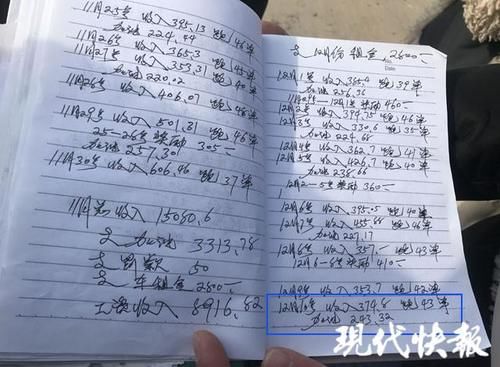 11月25号 收入 395.13 跑 46单
加油 224.44
11月26号 收入 365.3
11月27号 收入 353.31 跑 45单
加油 220.02
收入 406.07 跑
11月29号 收入 501.81 跑 46单
25-26号奖励 305
加油 257.301
11月30号 收入 606.46 跑 37单
收入 15080.6
加油 3313.78
罚款 50
车租金 2800
收入 8916.82
12月份 租金 2800
Date
12月1号 收入 365.4 跑 39单
加油 256.36
奖励 460
12月2号 收入 394.75 跑 46单
12月3号 收入 330.6 跑 35单
加油 224.68
12月4号 收入 362.7 跑 41单
12月5号 收入 426.7 跑 40单
加油 238.66
12月2-5号奖励 360
12月6号 收入 395.05 跑 40单
12月7号 收入 455.88 跑 46单
加油 227.17
12月8号 收入 357.1 跑 43单
12月6-8号奖励 410
12月9号 收入 353.7 跑 42单
12月10号 收入 374.8 跑 43单
加油 243.32
現代快報